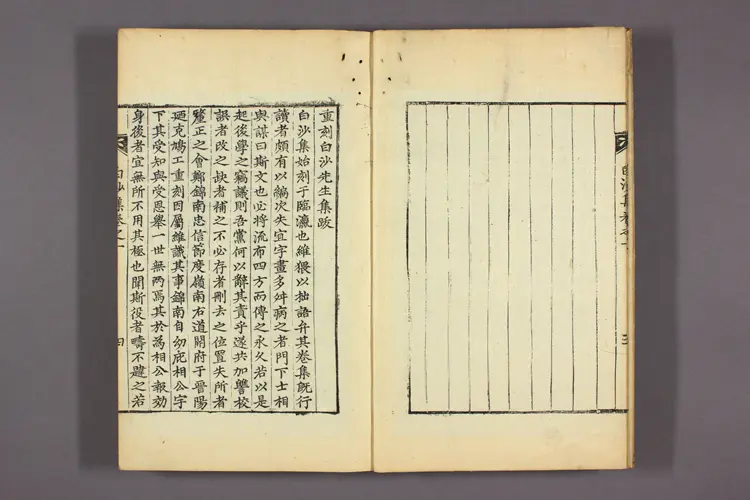 白沙集卷之
三
重刻白沙先生集跋
白沙集始刻于臨瀛也維猥以拙語弁其卷集旣行
讀者頗有以編次失宜字畫多舛病之者門下士相
與謀曰斯文也必將流布四方而傳之永久若以是
起後學之竊議則吾黨何以辭其責乎遂共加讐校
誤者改之缺者補之不必存者刪去之位置失所者
釐正之會鄭錦南忠信節度嶺南右道開府于晉陽
廼克鳩工重刻因屬維識其事錦南自幼庇相公字
下其受知與受恩舉一世無兩焉其於為相公報効
身後者宜無所不用其極也聞斯役者疇不韙之若
白沙集卷之一
四